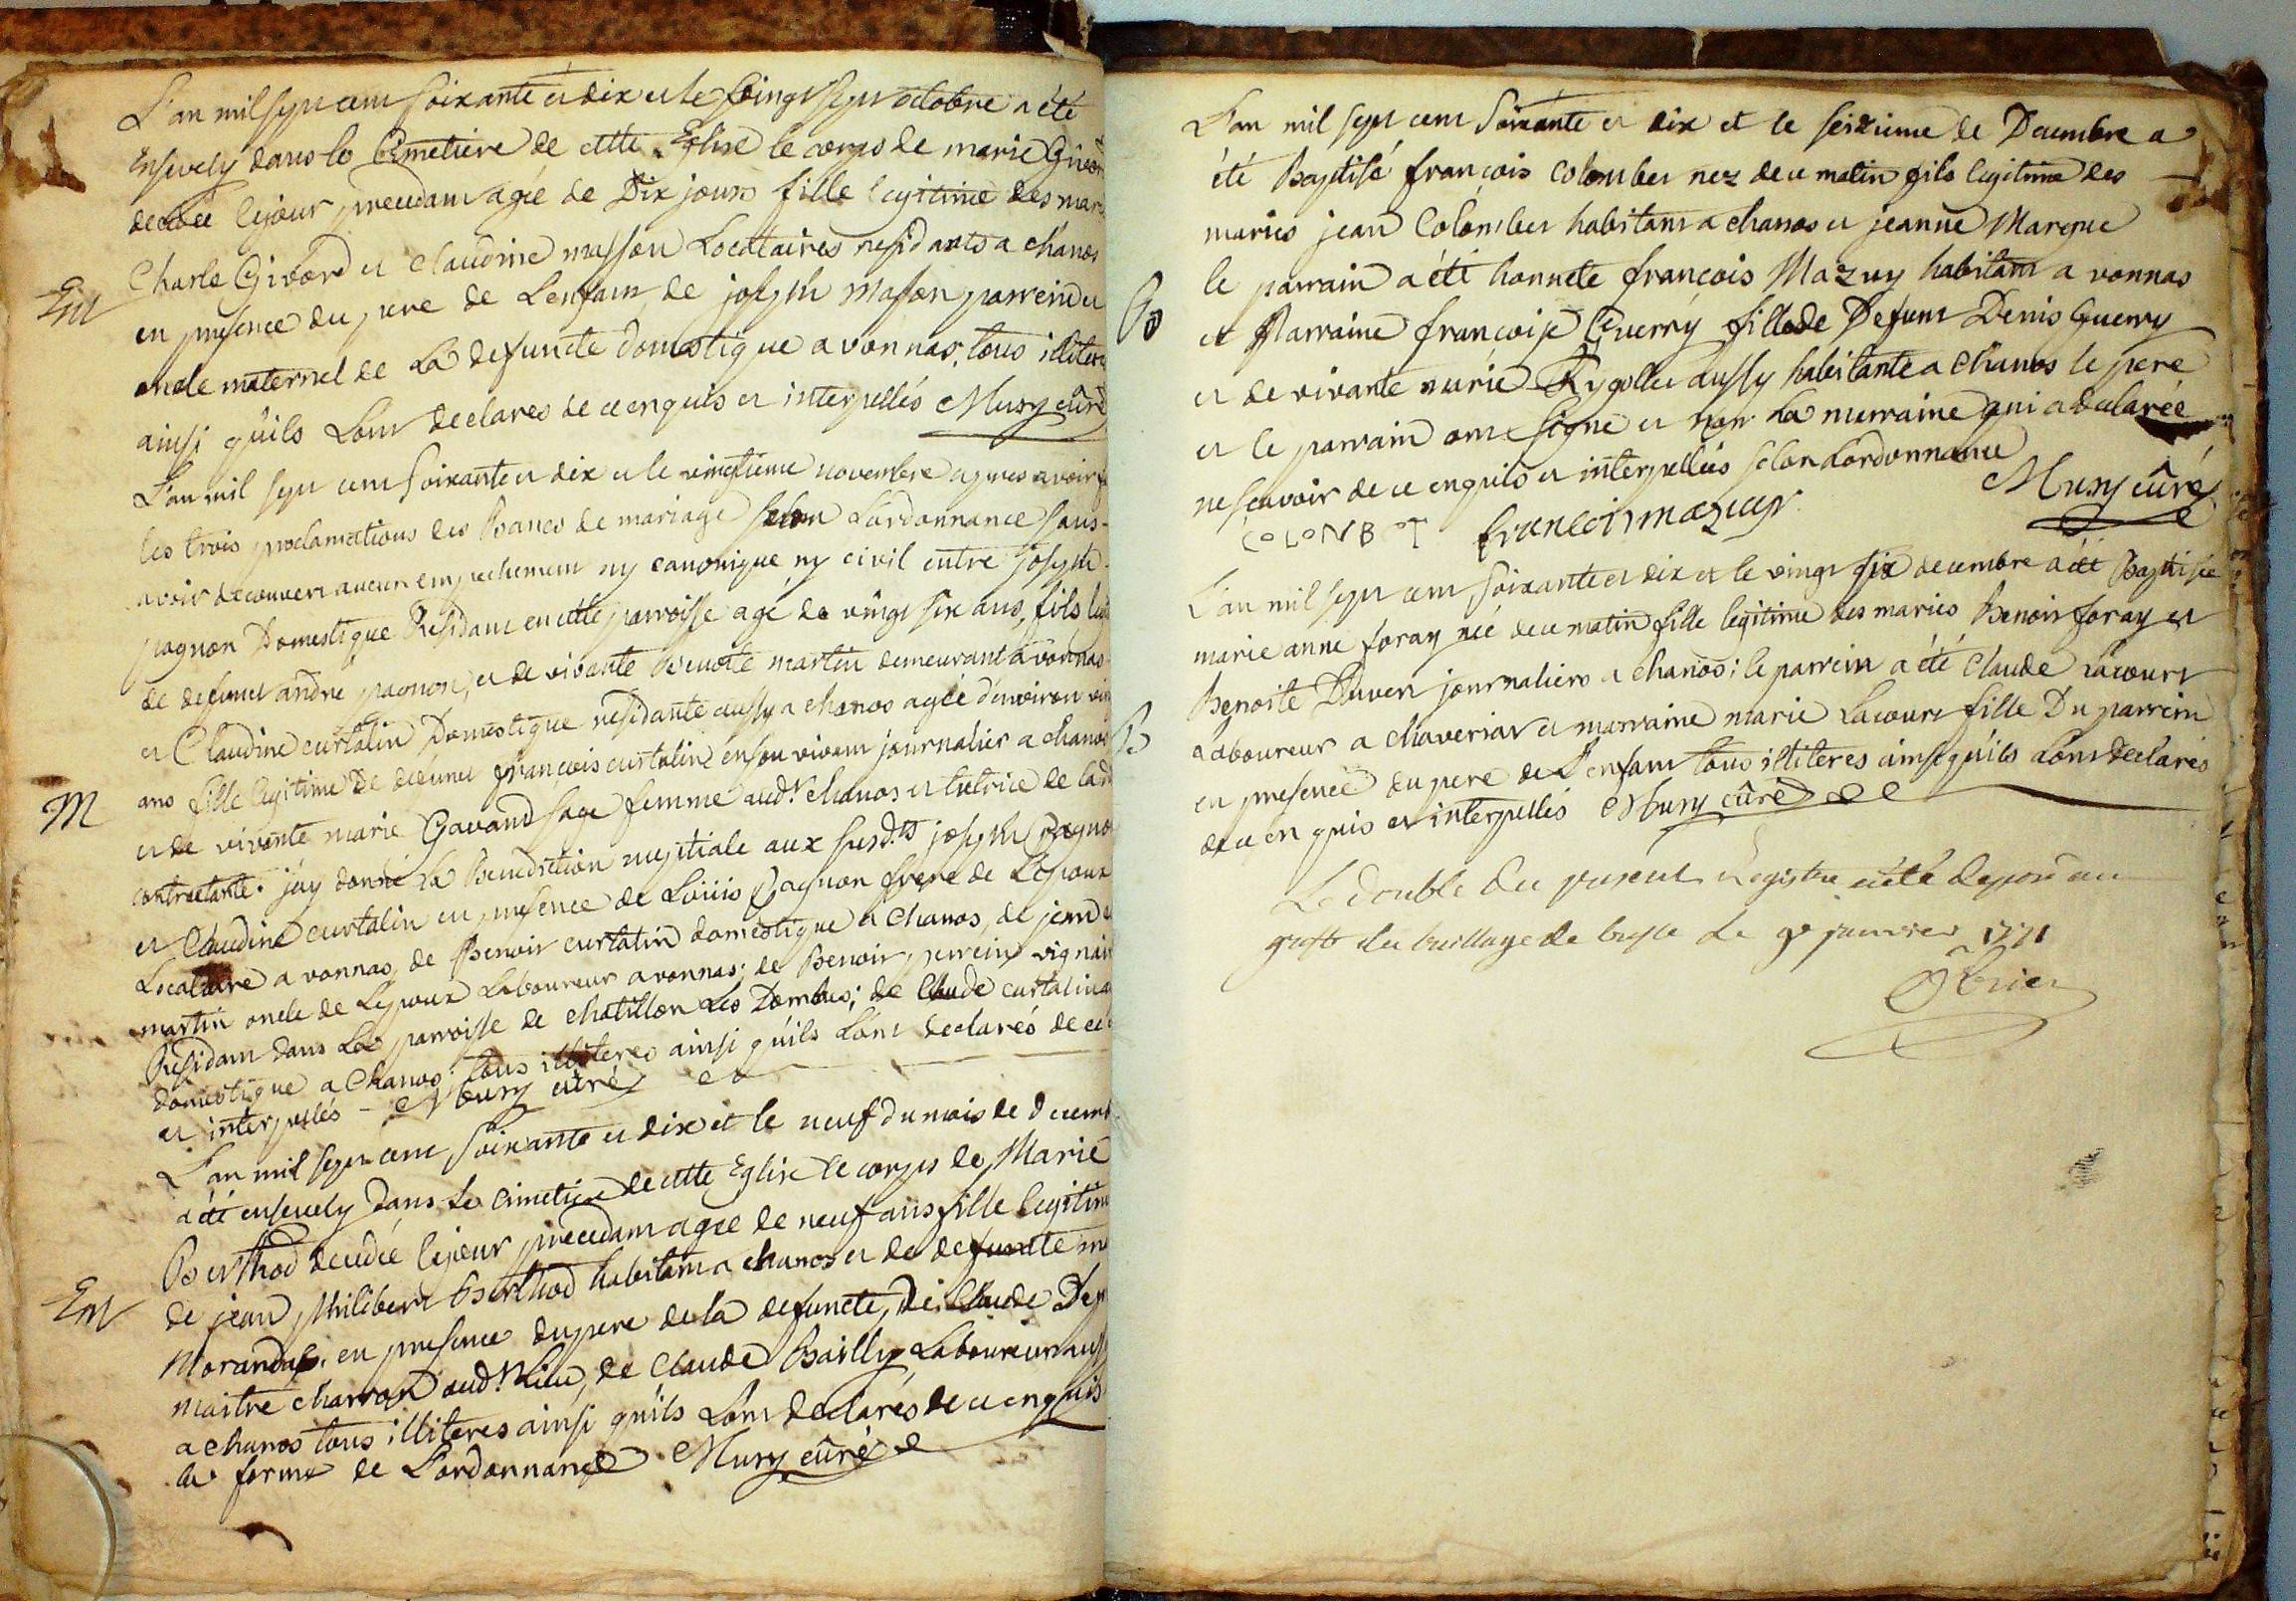 L'an mil sept cent soixante et dix et le vingt sept octobre a été
Ensevely dans le Cimetiere de cette Eglise le corps de marie Givord
decedée le jour precedant agée de Dix jours fille legitime des mar
Charle Givord et Claudine musson Locataires residants a chanos
Em
en presence du pere de Lenfant de joseph mason parrein et
oncle maternel de La defuncte domestique a vonnas, tous illitere
ainsi qu'ils Lont declarés de ce enquis et interpellés Mury curé
L'an mil sept cent soixante et dix et le vingtieme novembre apres avoir f
les trois proclamations des Bancs de mariage selon L'ordonnance sans
avoir decouvert aucun empechement ny canonique ny civil entre joseph
pagnon Domestique Residant en cette parroisse agé de vingt six ans, fils legit
de defunct andré pagnon, et de vivante Benoite martin demeurant a vonnas
et Claudine curtalin Domestique residante aussy a chanos agée d'environ vin
ans fille legitime de defunct françois curtalin en son vivant journalier a chanos
M
et de vivante marie Gavand sage femme aud.t chanos et tutrice de lad
contractante. j'ay donné La Benediction nuptiale aux susd.ts joseph Pagnon
et Claudine curtalin en presence de Loüis Pagnon frere de L'epoux
Locataire a vonnas, de Benoit curtalin domestique a Chanos, de jean
martin oncle de Lepoux Laboureur a vonnas; de Benoit perrein vignair
Residant dans La parroisse de chatillon Les Dombes; de Claude curtalin
domestique a Chanos; tous illiteres ainsi qu'ils L'ont declarés de ce
et interpellés - Mury curé
L'an mil sept cent soixante et dix et le neuf du mois de decemb
a été ensevely dans Le Cimetiere de cette Eglise le corps de Marie
Berthod decedée le jour precedant agée de neuf ans fille legitim
de jean philibert Berthod habitant a chanos et de defuncte m
Em
Morandas. en presence du pere de la defuncte, de Claude Dep
maitre charron aud.t Lieu, de Claude Bailly Laboureur auss
a chanos tous illiteres ainsi qu'ils Lont declarés de ce enquis
la forme de L'ordonnance Mury curé
L'an mil sept cent soixante et dix et le seizieme de Decembre a
été Baptisé françois Colombet nez de ce matin fils legitime des
mariés jean Colombet habitant a chanos et jeanne Margue
le parrain a été honnete françois Mazuy habitant a vonnas
B
et Marraine françoise Guerry fille de Defunt Denis Guerry
et de vivante marie Rygollet aussy habitante a Chanos le pere
et le parrain ont signé et non La marraine qui a declarée
ne scavoir de ce enquis et interpellés selon L'ordonnance
Mury curé
COLONBET françois mazuy
L'an mil sept cent soixante et dix et le vingt six decembre a été Baptisée
marie anne foray née de ce matin fille legitime des mariés Benoit foray et
Benoite Duvert journaliers a chanos; le parrein a été Claude Lacourt
B
Laboureur a chaveriat et marraine marie Lacourt fille Du parrein
en presence du pere de L'enfant tous illiteres ainsi qu'ils Lont declarés
de ce enquis et interpellés Mury curé
Le double du present registre a été deposé au
greffe du bailliage de bresse le 9e janvier 1771